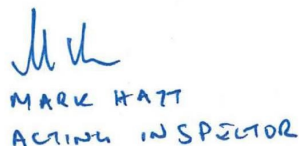 MARK HATT
ACTING INSPECTOR